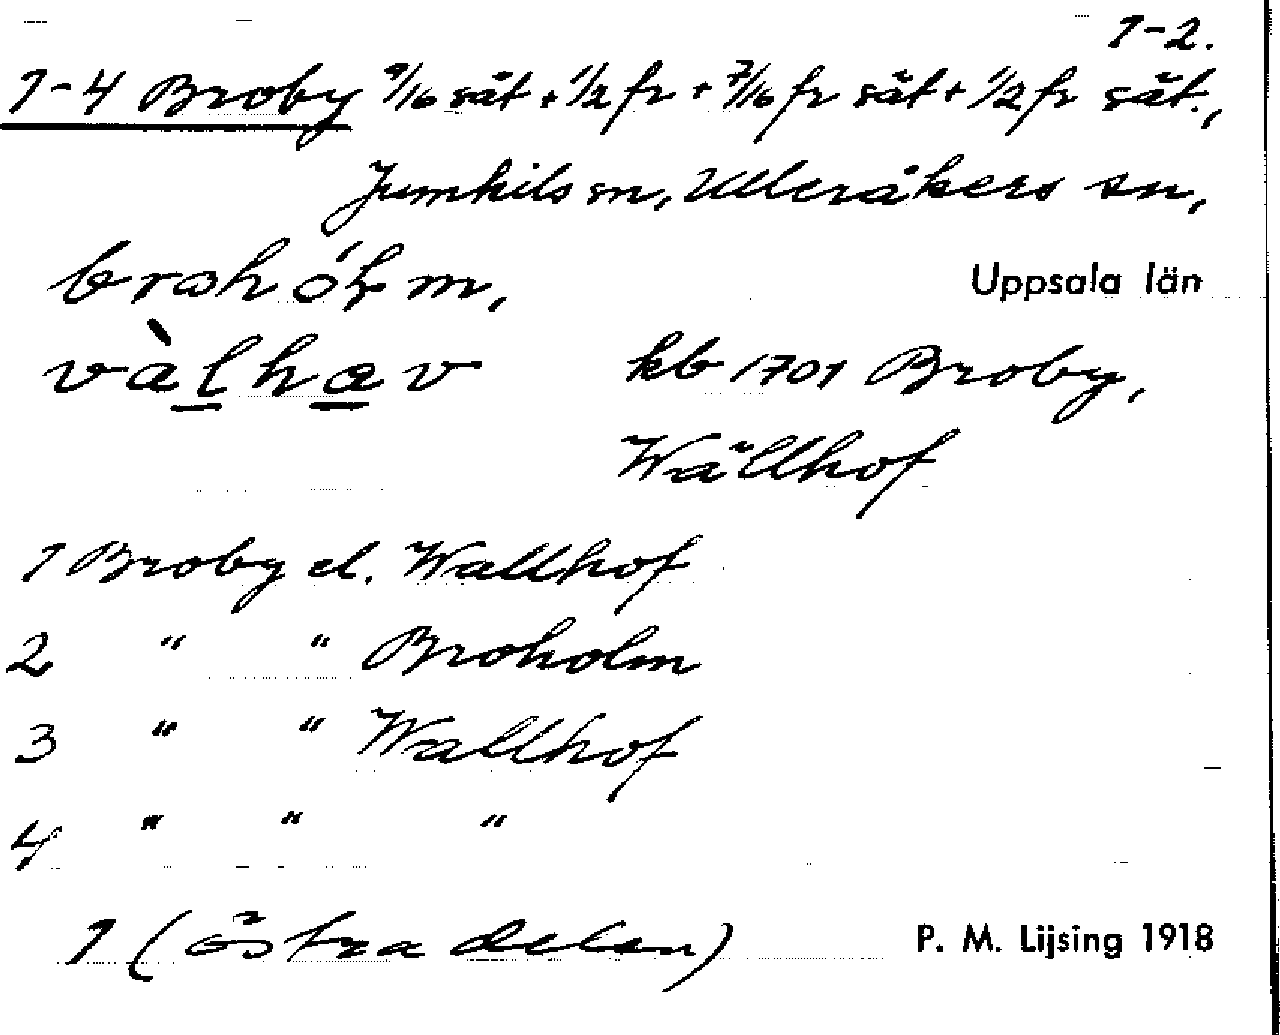 1-2.
1-4 Broby 9/16 sät + 1/2 fr + 7/16 fr sät + 1/2 fr sät.,
Jumkils sn, Ulleråkers sn,
Uppsala län
vàlhav
kb 1701 Broby,
Wällhof
1 Broby el. Wallhof
2 " " Broholm
3 " " Wallhof
4 " " "
1 (östra delen)
P. M. Lijsing 1918